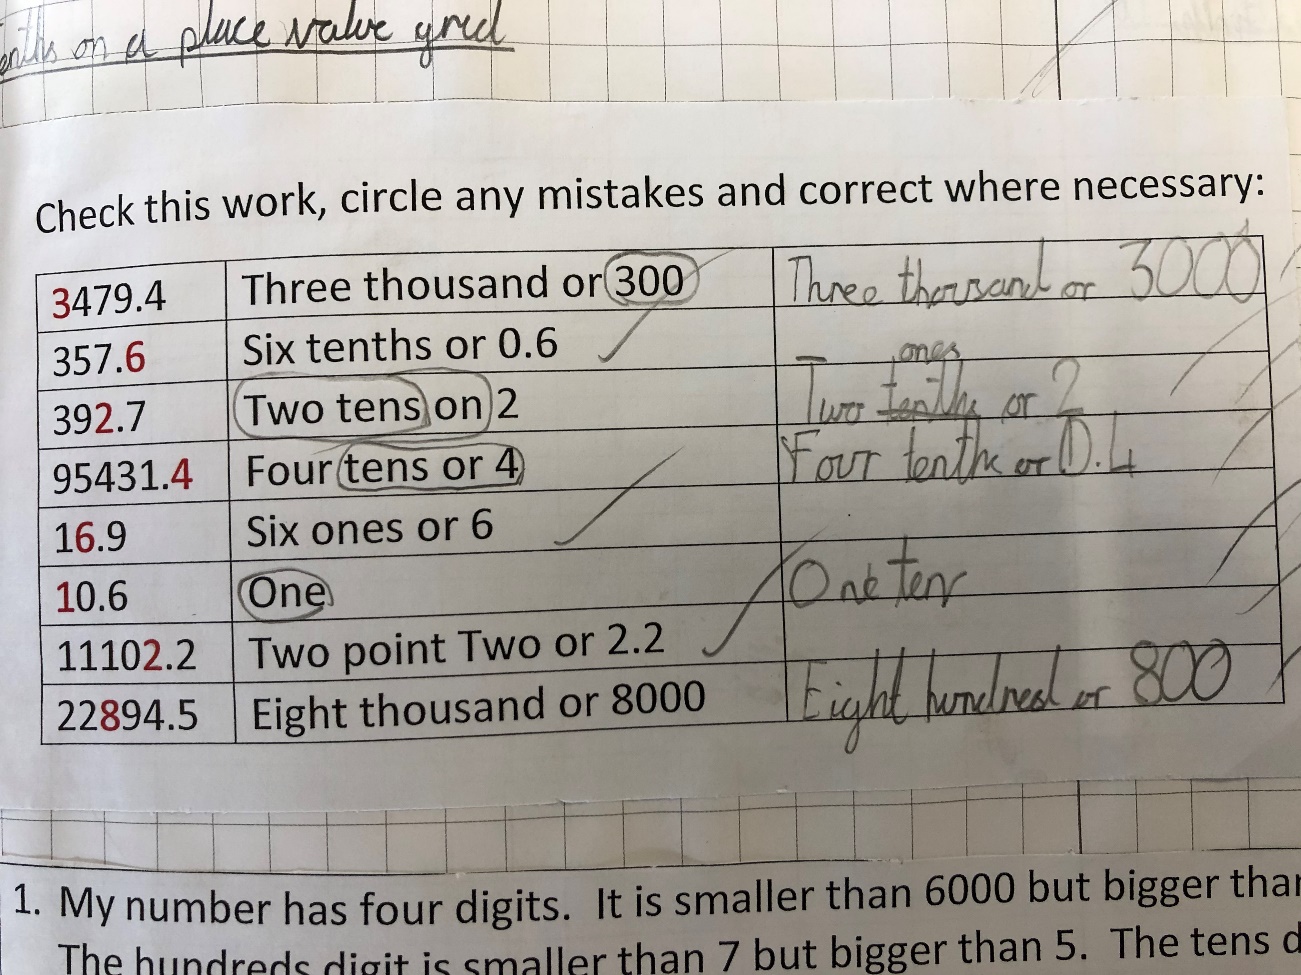 on a place value grid
Check this work, circle any mistakes and correct where necessary:
3479.4 Three thousand or 300 Three thousand or 3000
357.6 Six tenths or 0.6
ones
392.7 Two tens on 2 Two tenths or 2
95431.4 Four tens or 4 Four tenths or 0.4
16.9 Six ones or 6
10.6 One One ten
11102.2 Two point Two or 2.2
22894.5 Eight thousand or 8000 Eight hundred or 800
1. My number has four digits. It is smaller than 6000 but bigger than
The hundreds digit is smaller than 7 but bigger than 5. The tens d